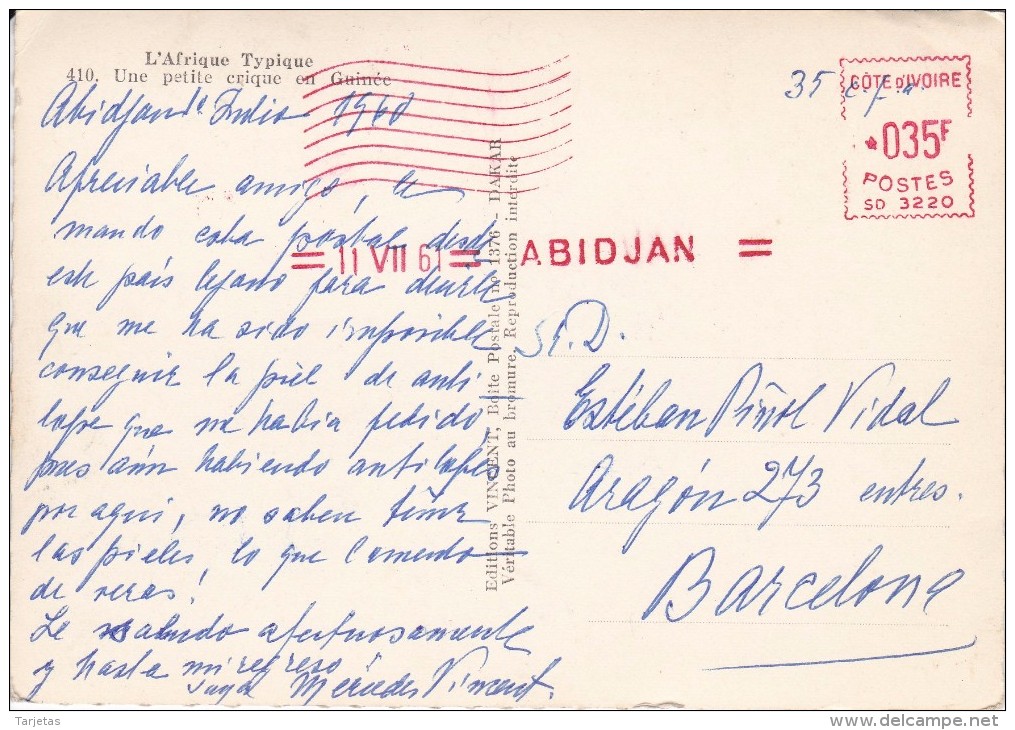 L'Afrique Typique
410. Une petite crique en Guinée
Abidjan 1960
Apreciable amigo, le
mando esta postal desde
este país lejano para decirle
que me ha sido imposible
conseguir la piel de anti
lope que me había pedido,
pues aún habiendo antilopes
por aquí, no saben teñir
las pieles, lo que lamento
de veras!
Le saludo afectuosamente
y hasta mi regreso
suya Mercedes Viment.
Editions VINCENT, Boite Postale no 1376 - DAKAR
Véritable Photo au bromure, Reproduction interdite
= 11 VII 61 = ABIDJAN =
35 c.f.a.
CÔTE D'IVOIRE
*035F
POSTES
SD 3220
Sr. D.
Estéban Piñol Vidal
Aragón 273 entres.
Barcelona
Tarjetas
delcampe.net